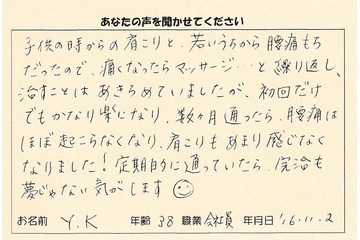 あなたの声を聞かせてください
子供の時からの肩こりと、若いうちから腰痛もち
だったので、痛くなったらマッサージ…と繰り返し、
治すことはあきらめていましたが、初回だけ
でもかなり楽になり、数ヶ月通ったら、腰痛は
ほぼ起こらなくなり、肩こりもあまり感じなく
なりました!定期的に通っていたら、完治も
夢じゃない気がします
お名前 Y.K 年齢 38 職業 会社員 年月日 '16.11.2